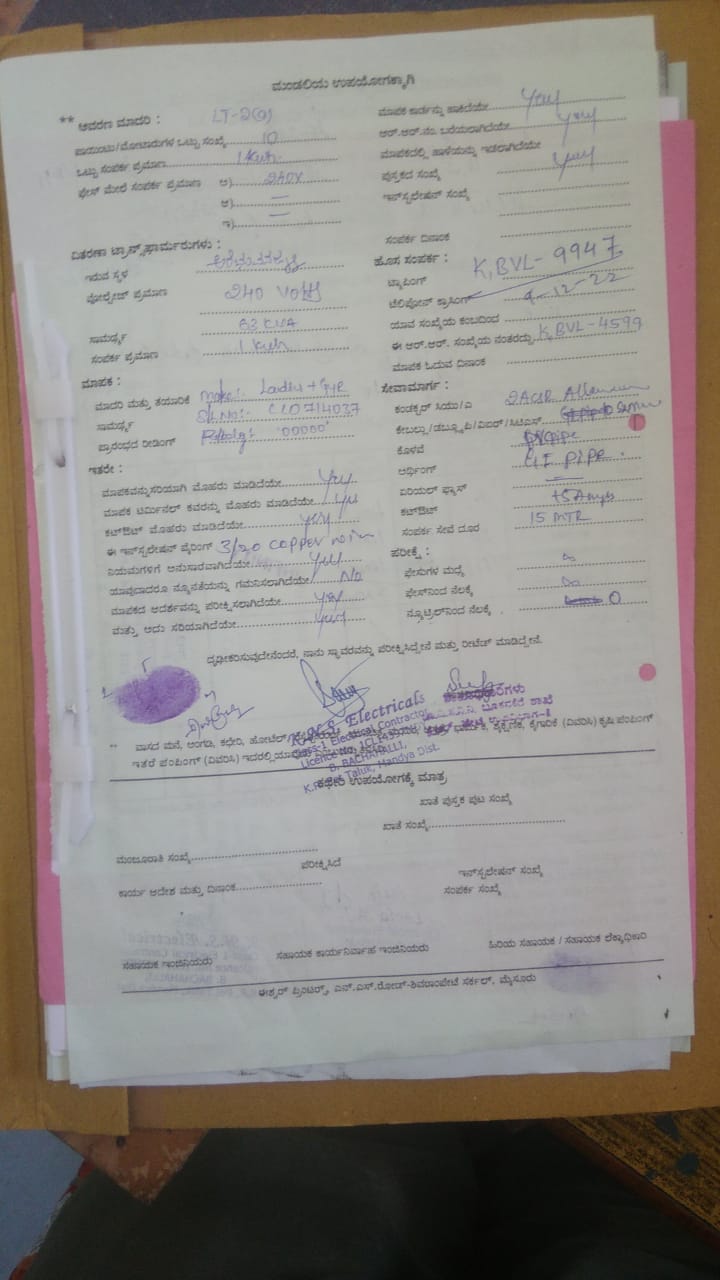 ಮಂಡಲಿಯ ಉಪಯೋಗಕ್ಕಾಗಿ
** ಆವರಣ ಮಾದರಿ : LT-2(a)
ಪಾಯಿಂಟು/ಮೋಟಾರುಗಳ ಒಟ್ಟು ಸಂಖ್ಯೆ 10
ಒಟ್ಟು ಸಂಪರ್ಕ ಪ್ರಮಾಣ 1 Kwh
ಫೇಸ್ ಮೇಲೆ ಸಂಪರ್ಕ ಪ್ರಮಾಣ ಅ) 240V
ಆ) =
ಇ)
ವಿತರಣಾ ಟ್ರಾನ್ಸ್‌ಫಾರ್ಮರುಗಳು :
ಇರುವ ಸ್ಥಳ
ವೋಲ್ಟೇಜ್ ಪ್ರಮಾಣ 240 Volts
ಸಾಮರ್ಥ್ಯ 63 KVA
ಸಂಪರ್ಕ ಪ್ರಮಾಣ 1 Kwh
ಮಾಪಕ :
ಮಾದರಿ ಮತ್ತು ತಯಾರಿಕೆ Make:-
ಸಾಮರ್ಥ್ಯ Sl.No:-
ಪ್ರಾರಂಭದ ರೀಡಿಂಗ್ '00000'
ಇತರೇ :
ಮಾಪಕವನ್ನು ಸರಿಯಾಗಿ ಮೊಹರು ಮಾಡಿದೆಯೇ Yes
ಮಾಪಕ ಟರ್ಮಿನಲ್ ಕವರನ್ನು ಮೊಹರು ಮಾಡಿದೆಯೇ Yes
ಕಟ್‌ಔಟ್ ಮೊಹರು ಮಾಡಿದೆಯೇ Yes
ಈ ಇನ್‌ಸ್ಟಲೇಷನ್ ವೈರಿಂಗ್ 3/20 Copper wire
ನಿಯಮಗಳಿಗೆ ಅನುಸಾರವಾಗಿದೆಯೇ Yes
ಯಾವುದಾದರೂ ನ್ಯೂನತೆಯನ್ನು ಗಮನಿಸಲಾಗಿದೆಯೇ No
ಮಾಪಕದ ಆದರ್ಶವನ್ನು ಪರೀಕ್ಷಿಸಲಾಗಿದೆಯೇ Yes
ಮತ್ತು ಅದು ಸರಿಯಾಗಿದೆಯೇ Yes
ಮಾಪಕ ಕಾರ್ಡನ್ನು ಹಾಕಿದೆಯೇ Yes
ಆರ್.ಆರ್.ನಂ. ಬರೆಯಲಾಗಿದೆಯೇ Yes
ಮಾಪಕದಲ್ಲಿ ಹಾಳೆಯನ್ನು ಇಡಲಾಗಿದೆಯೇ Yes
ಪುಸ್ತಕದ ಸಂಖ್ಯೆ
ಇನ್‌ಸ್ಟಲೇಷನ್ ಸಂಖ್ಯೆ
ಸಂಪರ್ಕ ದಿನಾಂಕ
ಹೊಸ ಸಂಪರ್ಕ : K,BVL-9947
ಟ್ಯಾಪಿಂಗ್
ಟೆಲಿಫೋನ್ ಕ್ರಾಸಿಂಗ್ 9-12-22
ಯಾವ ಸಂಖ್ಯೆಯ ಕಂಬದಿಂದ
ಈ ಆರ್.ಆರ್. ಸಂಖ್ಯೆಯ ನಂತರದ್ದು K,BVL-4599
ಮಾಪಕ ಓದುವ ದಿನಾಂಕ
ಸೇವಾಮಾರ್ಗ :
ಕಂಡಕ್ಟರ್ ಸಿಯು/ಎ 2ACSR
ಕೇಬಲ್ಲು/ಡಬ್ಲ್ಯೂಪಿ/ವಿಐಆರ್/ಸಿಟಿಎಸ್
ಕೊಳವೆ
ಅರ್ಥಿಂಗ್ GI PIPE.
ಏರಿಯಲ್ ಫ್ಯೂಸ್ —
ಕಟ್‌ಔಟ್ 15 Amps
ಸಂಪರ್ಕ ಸೇವೆ ದೂರ 15 MTR
ಪರೀಕ್ಷೆ :
ಫೇಸುಗಳ ಮಧ್ಯೆ ∞
ಫೇಸ್‌ನಿಂದ ನೆಲಕ್ಕೆ ∞
ನ್ಯೂಟ್ರಲ್‌ನಿಂದ ನೆಲಕ್ಕೆ 0
ದೃಢೀಕರಿಸುವುದೇನೆಂದರೆ, ನಾನು ಸ್ಥಾವರವನ್ನು ಪರೀಕ್ಷಿಸಿದ್ದೇನೆ ಮತ್ತು ರೀಟೆಡ್ ಮಾಡಿದ್ದೇನೆ.
Electricals
Class-1 Electrical Contractor
Licence No.
B. BACHAHALLI,
K.R.Pet Taluk, Mandya Dist.
** ವಾಸದ ಮನೆ, ಅಂಗಡಿ, ಕಛೇರಿ, ಹೋಟೆಲ್
ಇತರೆ ಪಂಪಿಂಗ್ (ವಿವರಿಸಿ) ಇದರಲ್ಲಿ
ಕೈಗಾರಿಕೆ (ವಿವರಿಸಿ) ಕೃಷಿ ಪಂಪಿಂಗ್
ಕಛೇರಿ ಉಪಯೋಗಕ್ಕೆ ಮಾತ್ರ
ಖಾತೆ ಪುಸ್ತಕ ಪುಟ ಸಂಖ್ಯೆ
ಖಾತೆ ಸಂಖ್ಯೆ
ಮಂಜೂರಾತಿ ಸಂಖ್ಯೆ
ಪರೀಕ್ಷಿಸಿದೆ
ಇನ್‌ಸ್ಟಲೇಷನ್ ಸಂಖ್ಯೆ
ಕಾರ್ಯ ಆದೇಶ ಮತ್ತು ದಿನಾಂಕ
ಸಂಪರ್ಕ ಸಂಖ್ಯೆ
ಸಹಾಯಕ ಇಂಜಿನಿಯರು ಸಹಾಯಕ ಕಾರ್ಯನಿರ್ವಾಹ ಇಂಜಿನಿಯರು ಹಿರಿಯ ಸಹಾಯಕ / ಸಹಾಯಕ ಲೆಕ್ಕಾಧಿಕಾರಿ
ಈಶ್ವರ್ ಪ್ರಿಂಟರ್ಸ್, ಎನ್.ಎಸ್.ರೋಡ್-ಶಿವರಾಂಪೇಟೆ ಸರ್ಕಲ್, ಮೈಸೂರು